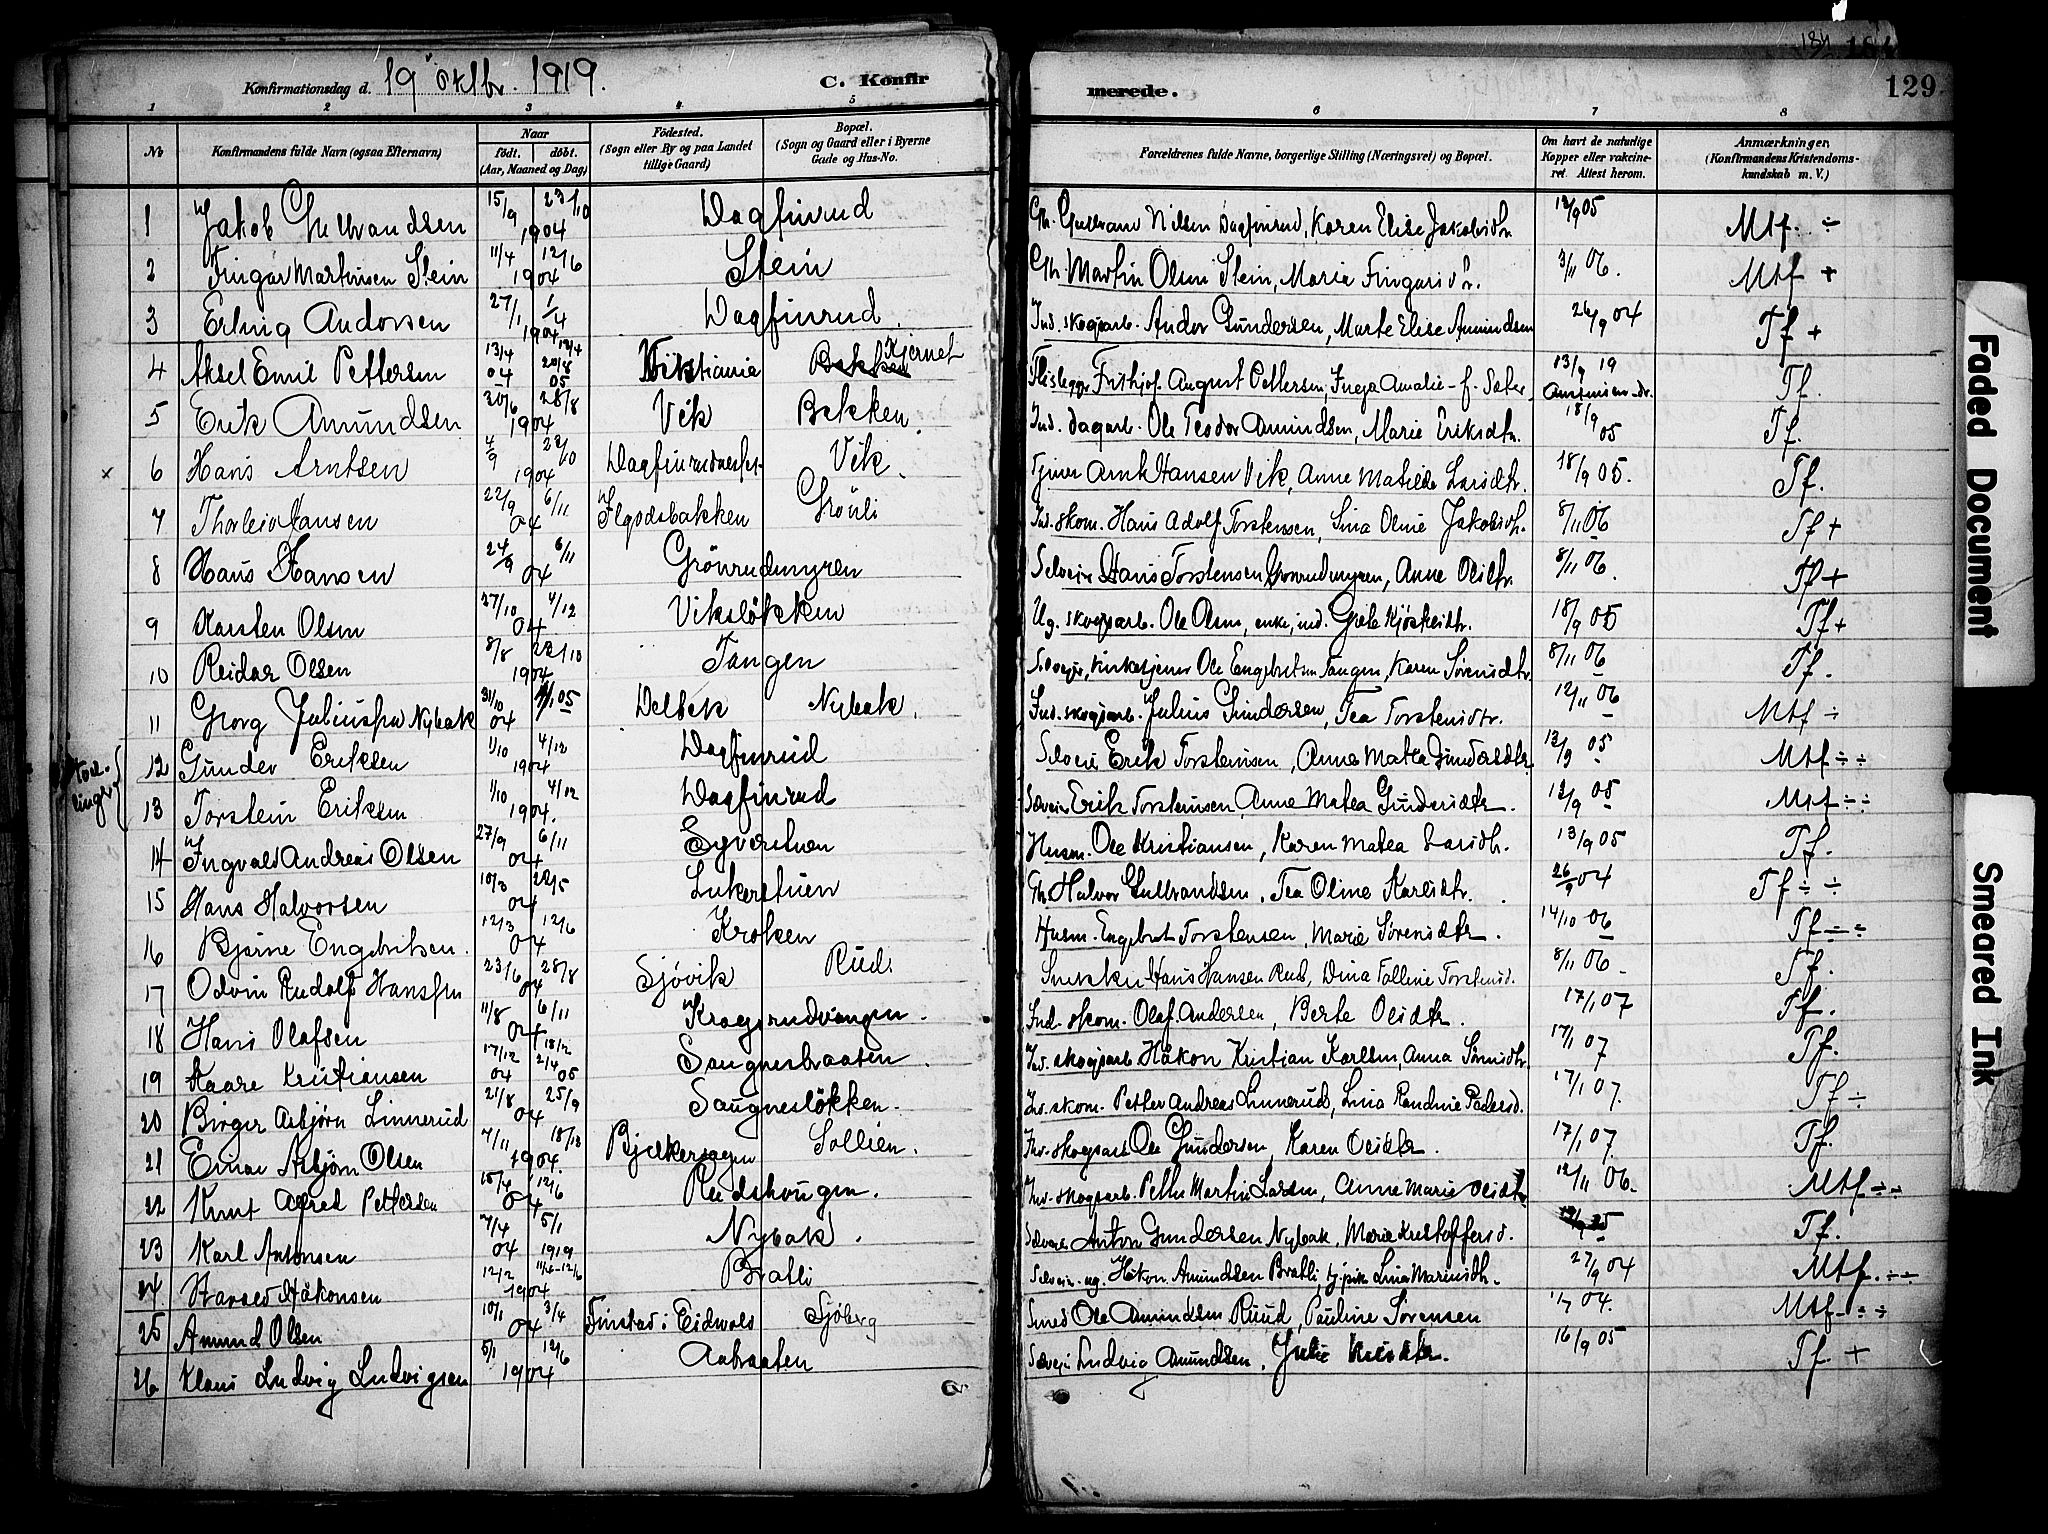 184
129
Konfirmationsdag d. 19 oktbr. 1919. C. Konfirmerede.
1 2 3 4 5 6 7 8
No Konfirmandens fulde Navn (ogsaa Efternavn) Naar født. døbt. (Aar, Maaned og Dag) Fødested. (Sogn eller By og paa Landet tillige Gaard) Bopæl. (Sogn og Gaard eller i Byerne Gade og Hus-No. Forældrenes fulde Navne, borgerlige Stilling (Næringsvei) og Bopæl. Om havt de naturlige Kopper eller vakcineret. Attest herom. Anmærkninger, (Konfirmandens Kristendomskundskab m. V.)
1 Jakob Gulbrandsen 15/9 23/10 1904 Dagfinrud Gb. Gulbrand Nilsen Dagfinrud, Karen Elise Jakobsdtr. 12/9 05 Mtf. ÷
2 Fingar Martinsen Stein 11/4 12/6 1904 Stein Gb. Martin Olsen Stein, Marie Fingarsdr. 3/11 06. Mtf +
3 Erling Andorsen 27/1 1/4 1904 Dagfinrud. Ind. skogsarb. Andor Gundersen, Marte Elise Amundsen 26/9 04 Tf +
4 Aksel Emil Pettersen 13/4 04 20/8 05 Kristiania Bekken Kjernet Flislegger Frithjof August Pettersen, Inga Amalie f. Sæter 13/9 19 Tf.
5 Erik Amundsen 20/6 28/8 1904 Vik Bekken. Ind. dagarb. Ole Teodor Amundsen, Marie Eriksdtr. 18/9 05 Tf.
6 Hans Arntsen 4/9 22/10 1904 Vik. Tjener Arnt Hansen Vik, Anne Matilde Larsdtr. 18/9 05. Tf.
7 Thorleif Hansen 22/9 6/11 04 Ilgodsbakken Grønli Ind. skom. Hans Adolf Torstensen, Lina Oline Jakobsdtr. 8/11 06 Tf +
8 Hans Hansen 24/9 6/11 04 Grönrudmyren Selveier Hans Torstensen Grönrudmyren, Anne Olsdtr. 8/11 06. Tf +
9 Karsten Olsen 27/10 4/12 04 Viksløkken Ug. skogsarb. Ole Olsen, enke, ind. Grete Kjøstelsdtr. 18/9 05 Tf +
10 Reidar Olsen 8/8 22/10 1904 Tangen Selveier, kirketjener Ole Engebretsen Tangen, Karen Sørensdtr. 8/11 06 Tf.
11 Georg Juliussen Nybak 31/10 04 1/1 05 Delbek Nybak. Ind. skogsarb. Julius Gundersen, Tea Torstensdtr. 12/11 06 Mtf ÷
Tvillinger
12 Gunder Eriksen 1/10 4/12 1904 Dagfinrud Selveier Erik Torstensen, Anne Matea Gundersdtr. 12/9 05 Mtf ÷ ÷
13 Torstein Eriksen 1/10 4/12 1904. Dagfinrud Selveier Erik Torstensen, Anne Matea Gundersdtr. 12/9 05 Mtf ÷ ÷
14 Ingvald Andreas Olsen 27/9 6/11 04 Syverstuen Husm. Ole Kristiansen, Karen Matea Larsdtr. 13/9 05 Tf.
15 Hans Halvorsen 10/3 22/5 04 Lukerstuen Gb. Halvor Gulbrandsen, Tea Oline Karlsdtr. 26/9 04 Tf ÷ ÷
16 Bjarne Engebretsen. 12/3 12/6 04 Kroken Husm. Engebret Torstensen, Marie Sørensdtr. 14/10 06 Tf ÷ ÷
17 Odvin Rudolf Hanssen 23/6 28/8 04 Sjøvik Rud. Hans Hansen Rud, Dina Talline Torstensd. 8/11 06 Tf.
18 Hans Olafsen 11/8 6/11 04 Kragsrudvangen. Ind. skom. Olaf Andersen, Berte Olsdtr. 17/1 07 Tf.
19 Kaare Kristiansen 17/12 04 2/4 05 Saugnesbraaten. Ind. skogsarb. Håkon Kristian Karlsen, Anna Simensdtr. 17/1 07 Tf.
20 Birger Asbjørn Linnerud 21/8 25/9 04 Saugnesløkken. Ind. skom. Petter Andreas Linnerud, Lina Randine Pedersd. 17/1 07. Tf ÷
21 Einar Asbjørn Olsen 7/11 18/12 1904. Bjerkerengen Sollien. Ind. skogsarb. Ole Gundersen, Karen Olsdtr. 17/1 07. Tf.
22 Knut Alfred Pettersen 15/4 12/6 04 Rudshaugen. Ind. skogsarb. Petter Martin Larsen, Anne Marie Olsdtr 12/11 06. Mtf ÷ ÷
23 Karl Antonsen 7/4 04 5/1 1919 Nybak. Selveier Anton Gundersen Nybak, Marie Kristoffersd. Tf.
24 Harald Håkonsen 12/2 12/6 1904 Bratli Selveier. ug. Håkon Amundsen Bratli, tj.pike Lina Marensdtr. 27/9 04 Mtf. ÷ ÷
25 Amund Olsen 10/1 3/4 04 Finstad i Eidsvold Sjøberg Smed Ole Amundsen Ruud, Pauline Sørensen 1/7 04. Mtf ÷ ÷
26 Klaus Ludvig Ludvigsen 5/1 12/6 1904 Aabraaten Selveier Ludvig Amundsen, Julie Nilsdtr. 16/9 05 Tf. +
Faded Document
Smeared Ink